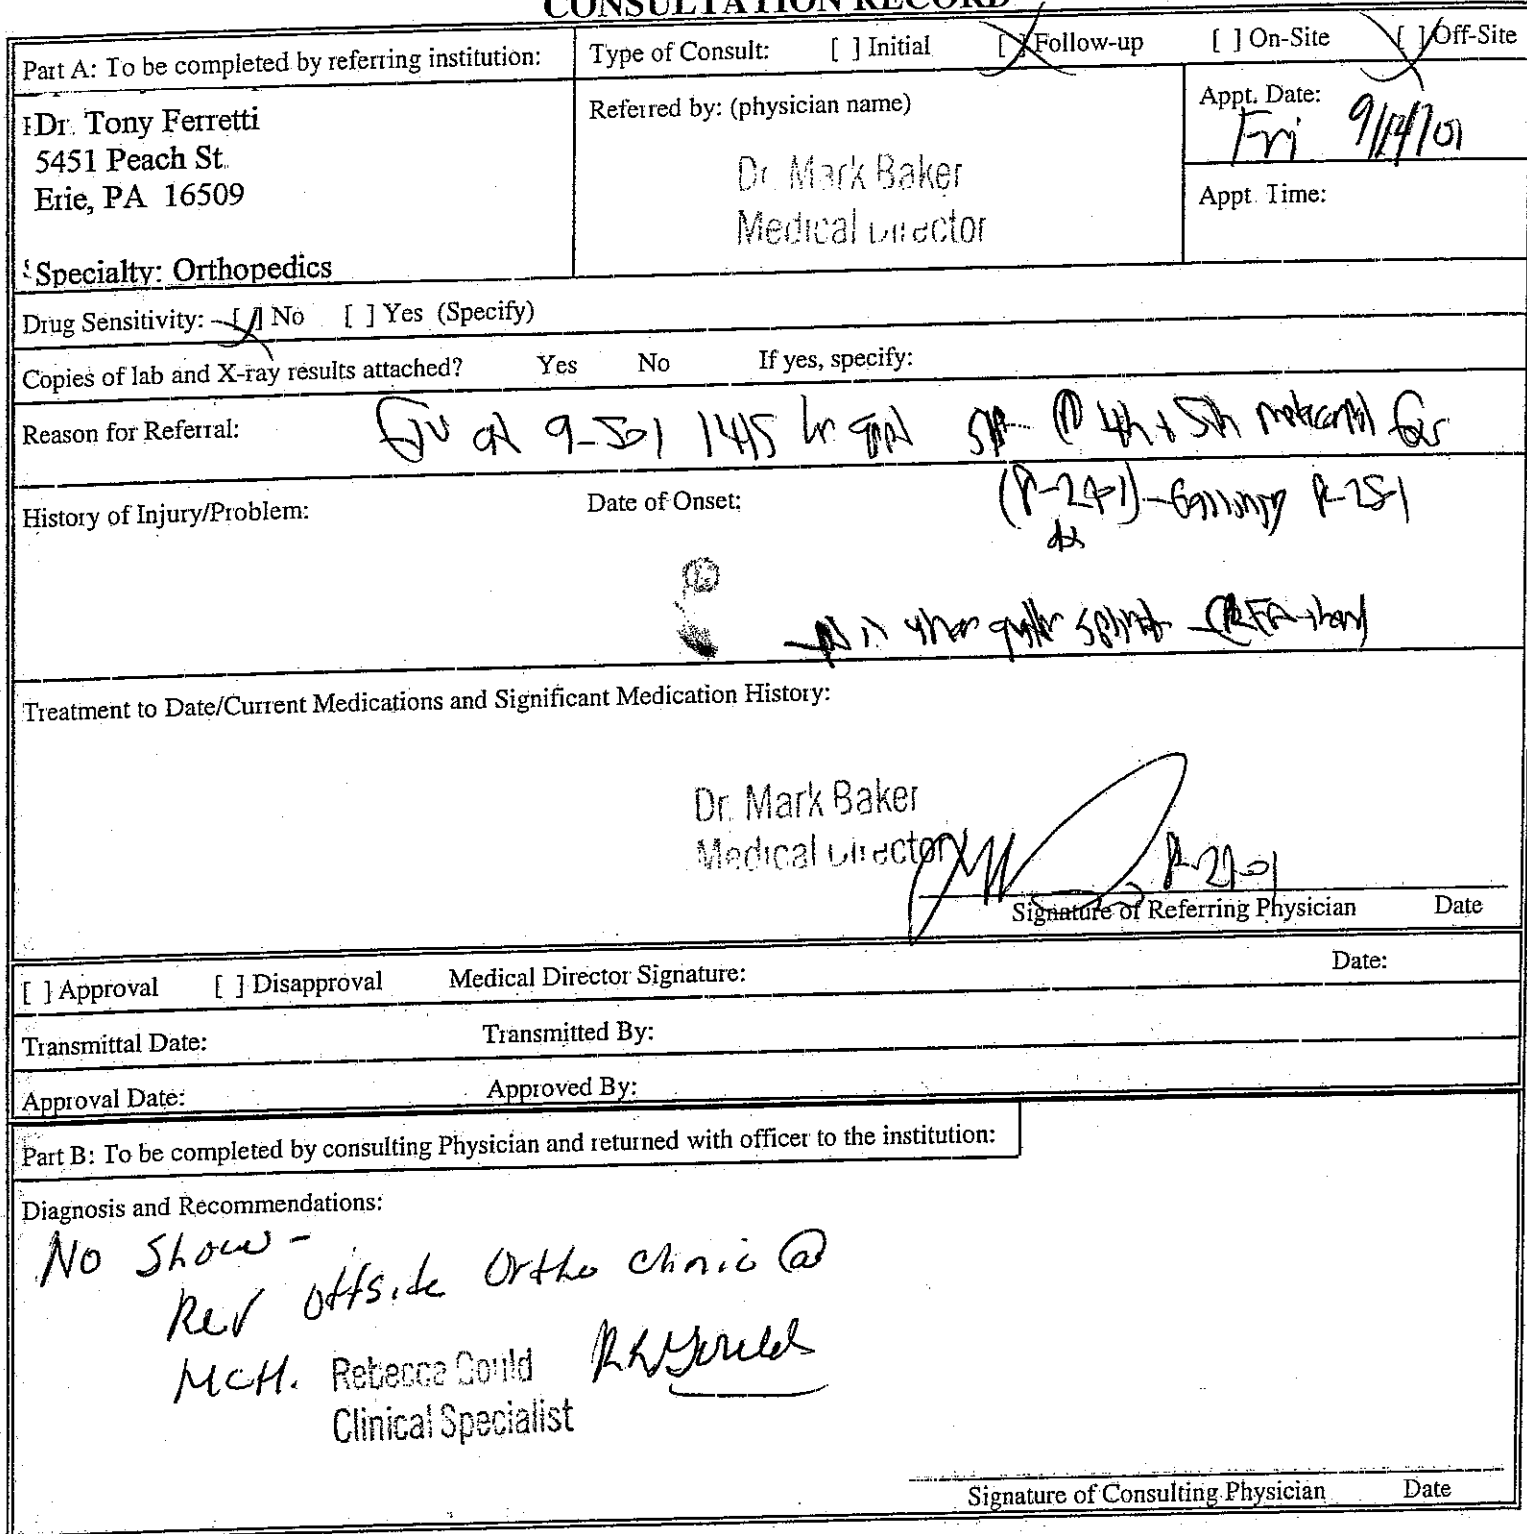 CONSULTATION RECORD
Part A: To be completed by referring institution:
Type of Consult: [ ] Initial [X] Follow-up [ ] On-Site [X] Off-Site
Dr. Tony Ferretti
5451 Peach St.
Erie, PA 16509
Specialty: Orthopedics
Referred by: (physician name)
Dr. Mark Baker
Medical Director
Appt. Date:
Fri
Appt. Time:
Drug Sensitivity: [X] No [ ] Yes (Specify)
Copies of lab and X-ray results attached? Yes No If yes, specify:
Reason for Referral: 4th + 5th metacarpal
History of Injury/Problem: Date of Onset:
splint
Treatment to Date/Current Medications and Significant Medication History:
Dr. Mark Baker
Medical Director
Signature of Referring Physician Date
[ ] Approval [ ] Disapproval Medical Director Signature: Date:
Transmittal Date: Transmitted By:
Approval Date: Approved By:
Part B: To be completed by consulting Physician and returned with officer to the institution:
Diagnosis and Recommendations:
No Show -
offside Ortho clinic @
MCH. Rebecca Gould
Clinical Specialist
Signature of Consulting Physician Date